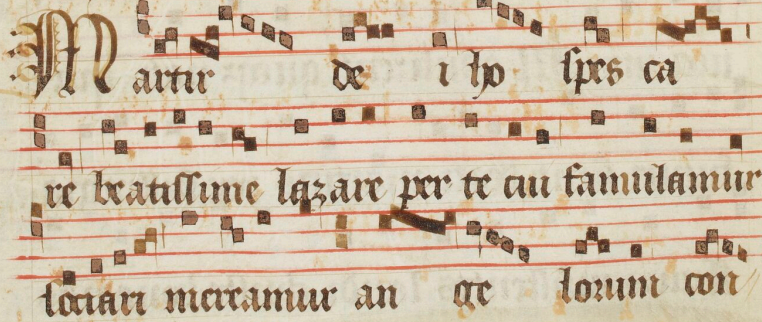 Martir de i ho spes ca
re beatissime lazare per te cui famulamur
lociari mereamur an ge lorum con